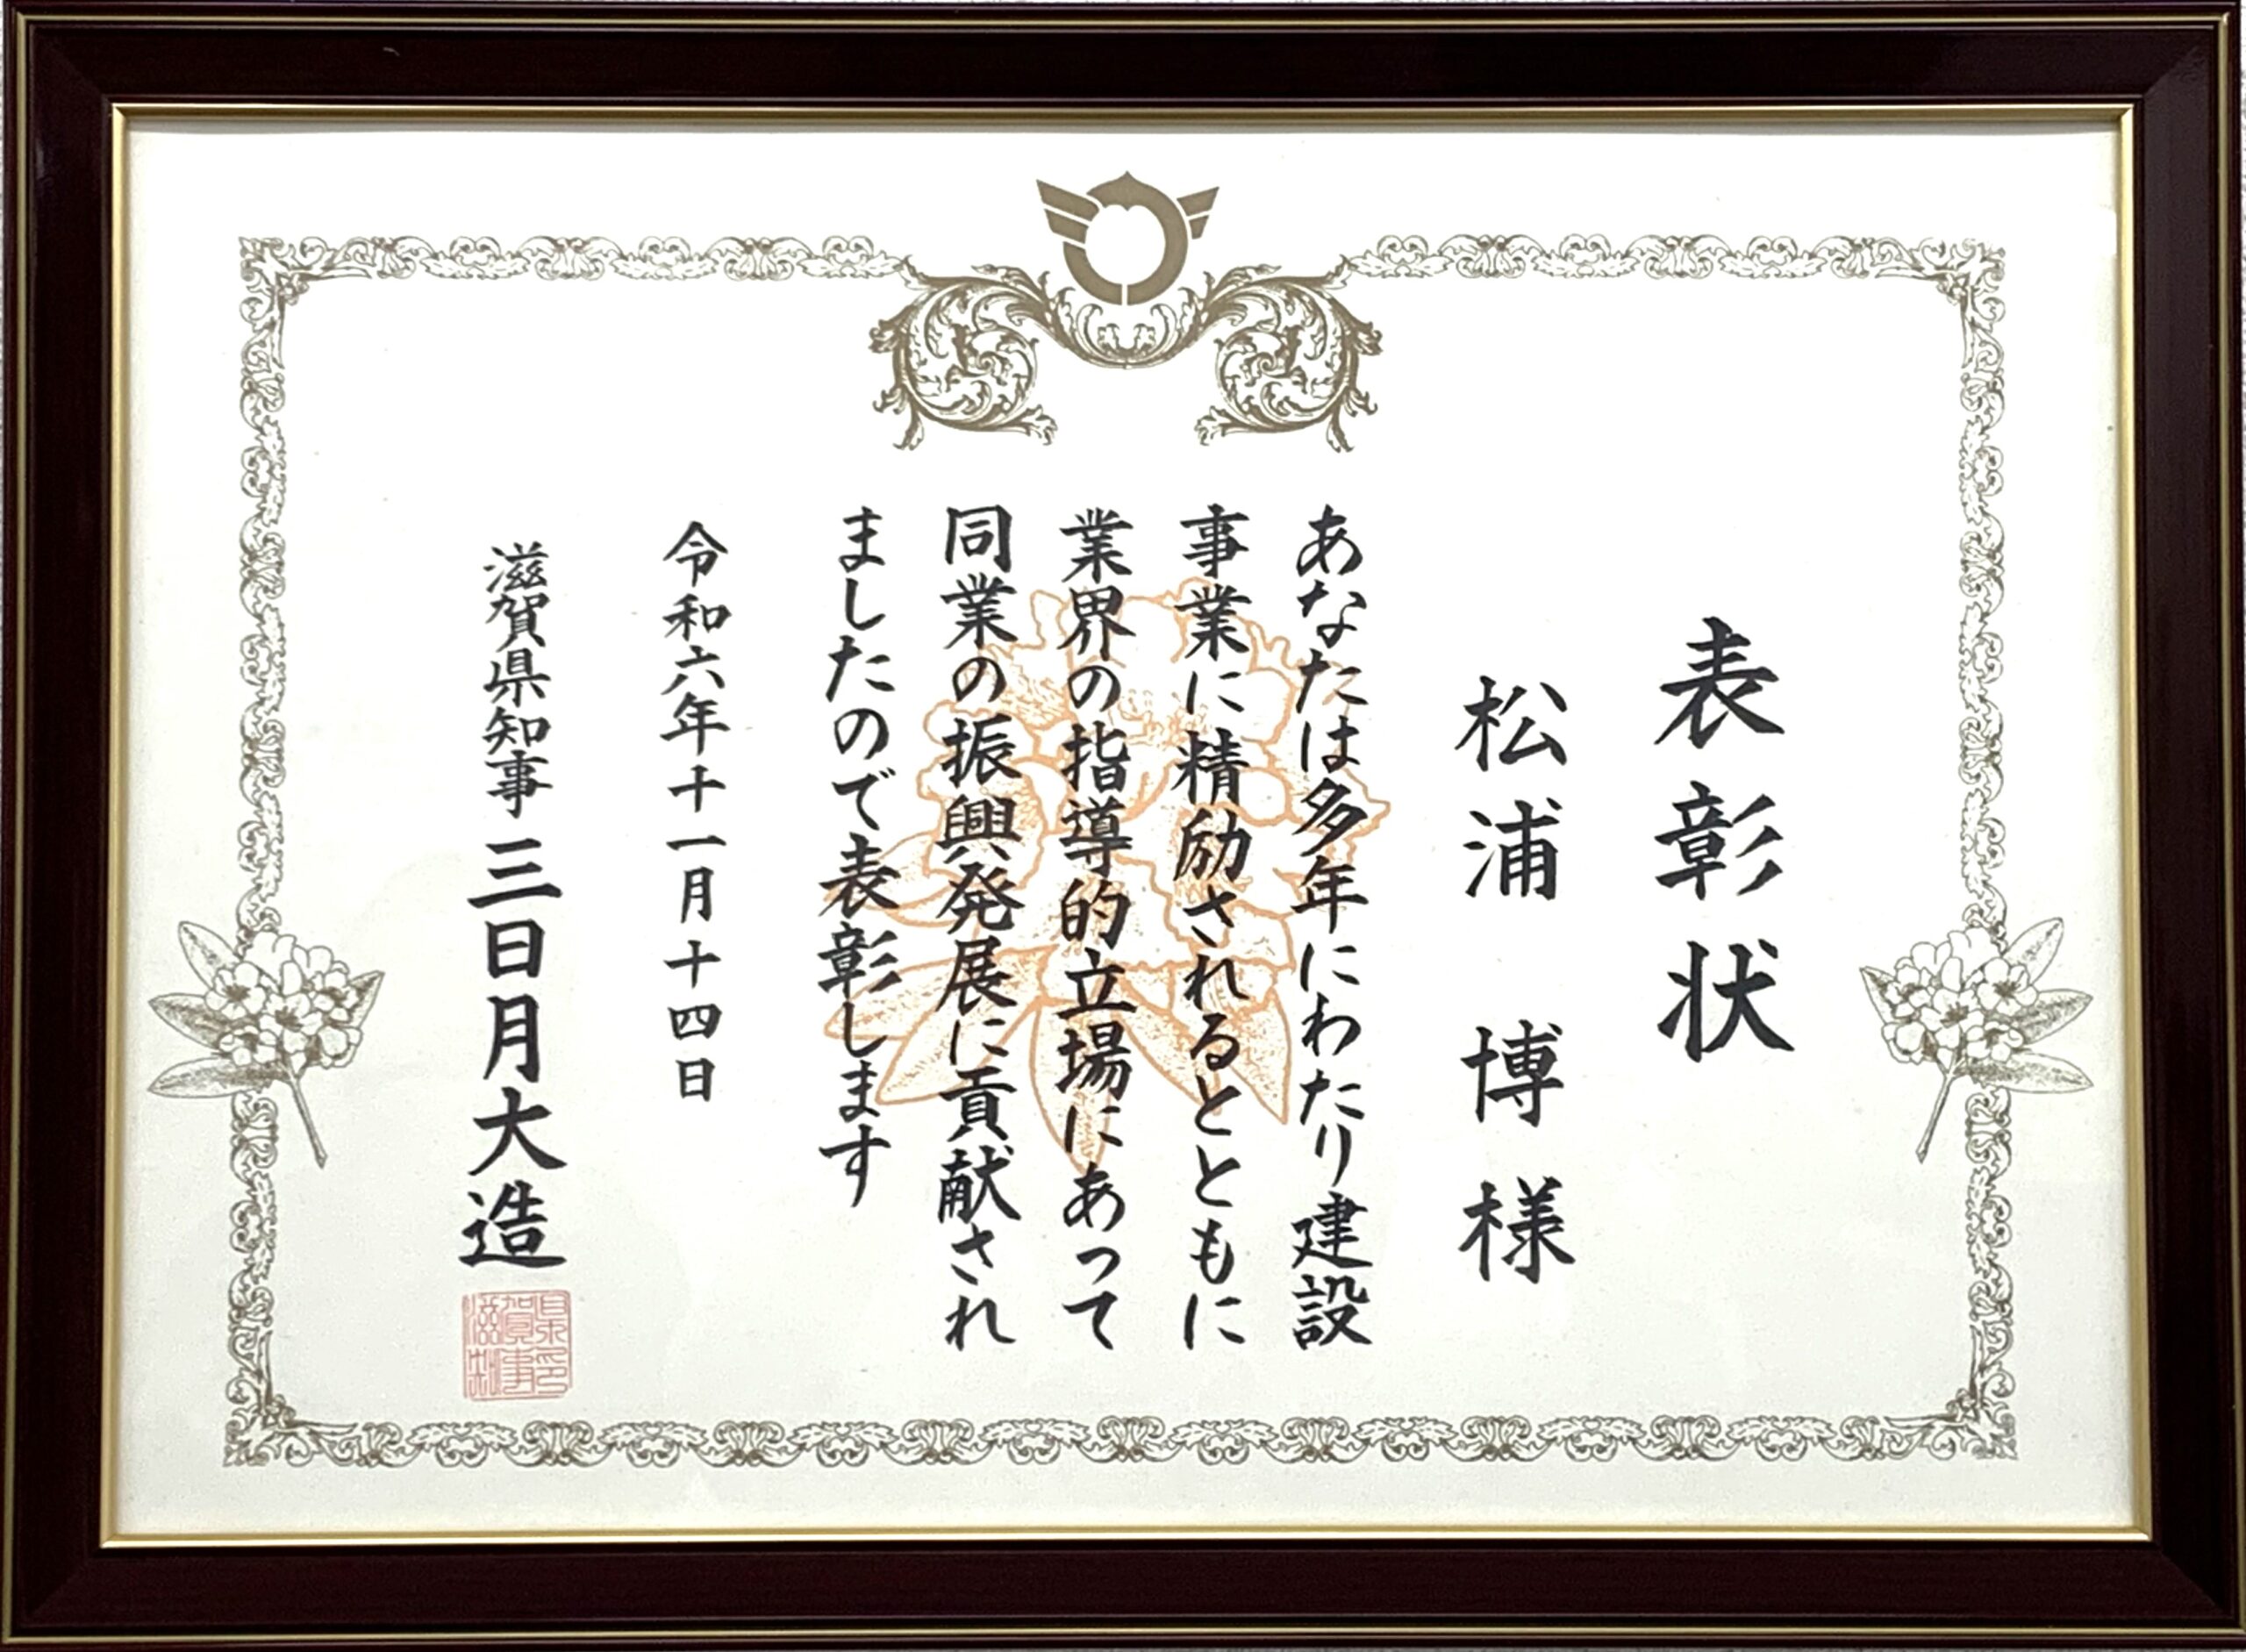 表彰状
松浦 博 様
あなたは多年にわたり建設
事業に精励されるとともに
業界の指導的立場にあって
同業の振興発展に貢献され
ましたので表彰します
令和六年十一月十四日
滋賀県知事 三日月大造
滋賀県知事印